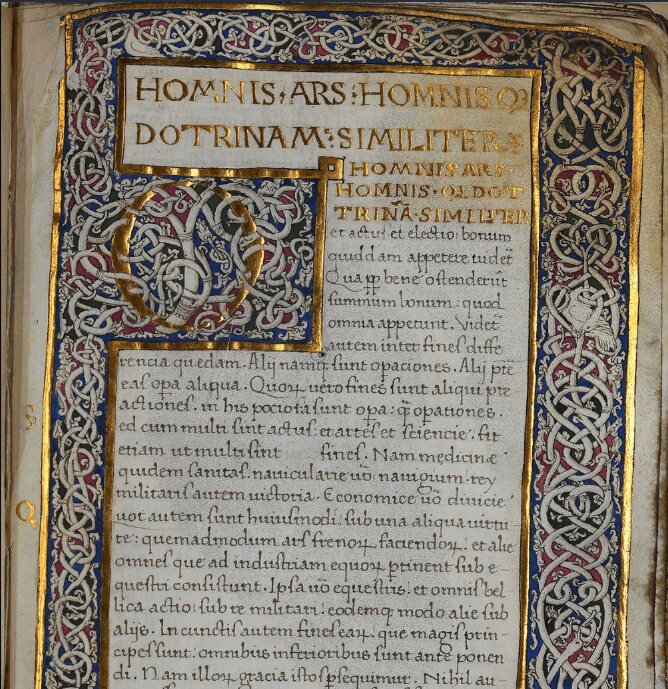 HOMNIS ARS: HOMNIS Q
DOTRINAM: SIMILITER
HOMNIS ARS.
HOMNIS. Q DOT
TRINĀ. SIMILITER
et actus et electio bonum
quiddam appetere uidet
Qua ꝓp bene ostenderūt
summum bonum: quod
omnia appetunt. Videt
autem inter fines diffe
rentia quedam. Alij namq; sunt opaciones. Alij pte
eas opa aliqua. Quoꝝ uero fines sunt aliqui pre
actiones. in his pociora sunt opa: q̄ opationes.
ed cum multi sint actus: et artes et sciencie. fit
etiam ut multi sint fines. Nam medicine
quidem sanitas. nauicularie uō nauigium. rey
militaris autem uictoria. Economice uō diuicie
uot autem sunt huiusmodi: sub una aliqua uirtu
te: quemadmodum ars frenoꝝ faciendoꝝ: et alie
omnes que ad industriam equoꝝ ptinent sub e-
questri consistunt. Ipsa uō equestris: et omnis bel
lica actio: sub re militari: eodemq modo alie sub
alijs. In cunctis autem fines eaꝝ. que magis prin-
cipes sunt: omnibus inferiotibus sunt ante ponen
di. Nam illoꝝ gracia istos psequimur. Nihil au-
S
Q